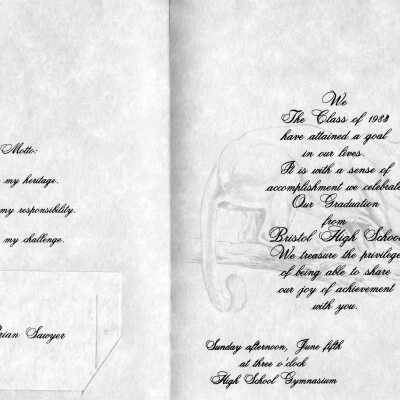 Motto:
my heritage.
my responsibility.
my challenge.
rian Sawyer
We
The Class of 1988
have attained a goal
in our lives.
It is with a sense of
accomplishment we celebrate
Our Graduation
from
Bristol High School
We treasure the privilege
of being able to share
our joy of achievement
with you.
Sunday afternoon, June fifth
at three o'clock
High School Gymnasium